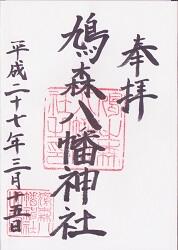 奉拝
鳩森八幡神社
平成二十七年三月十五日